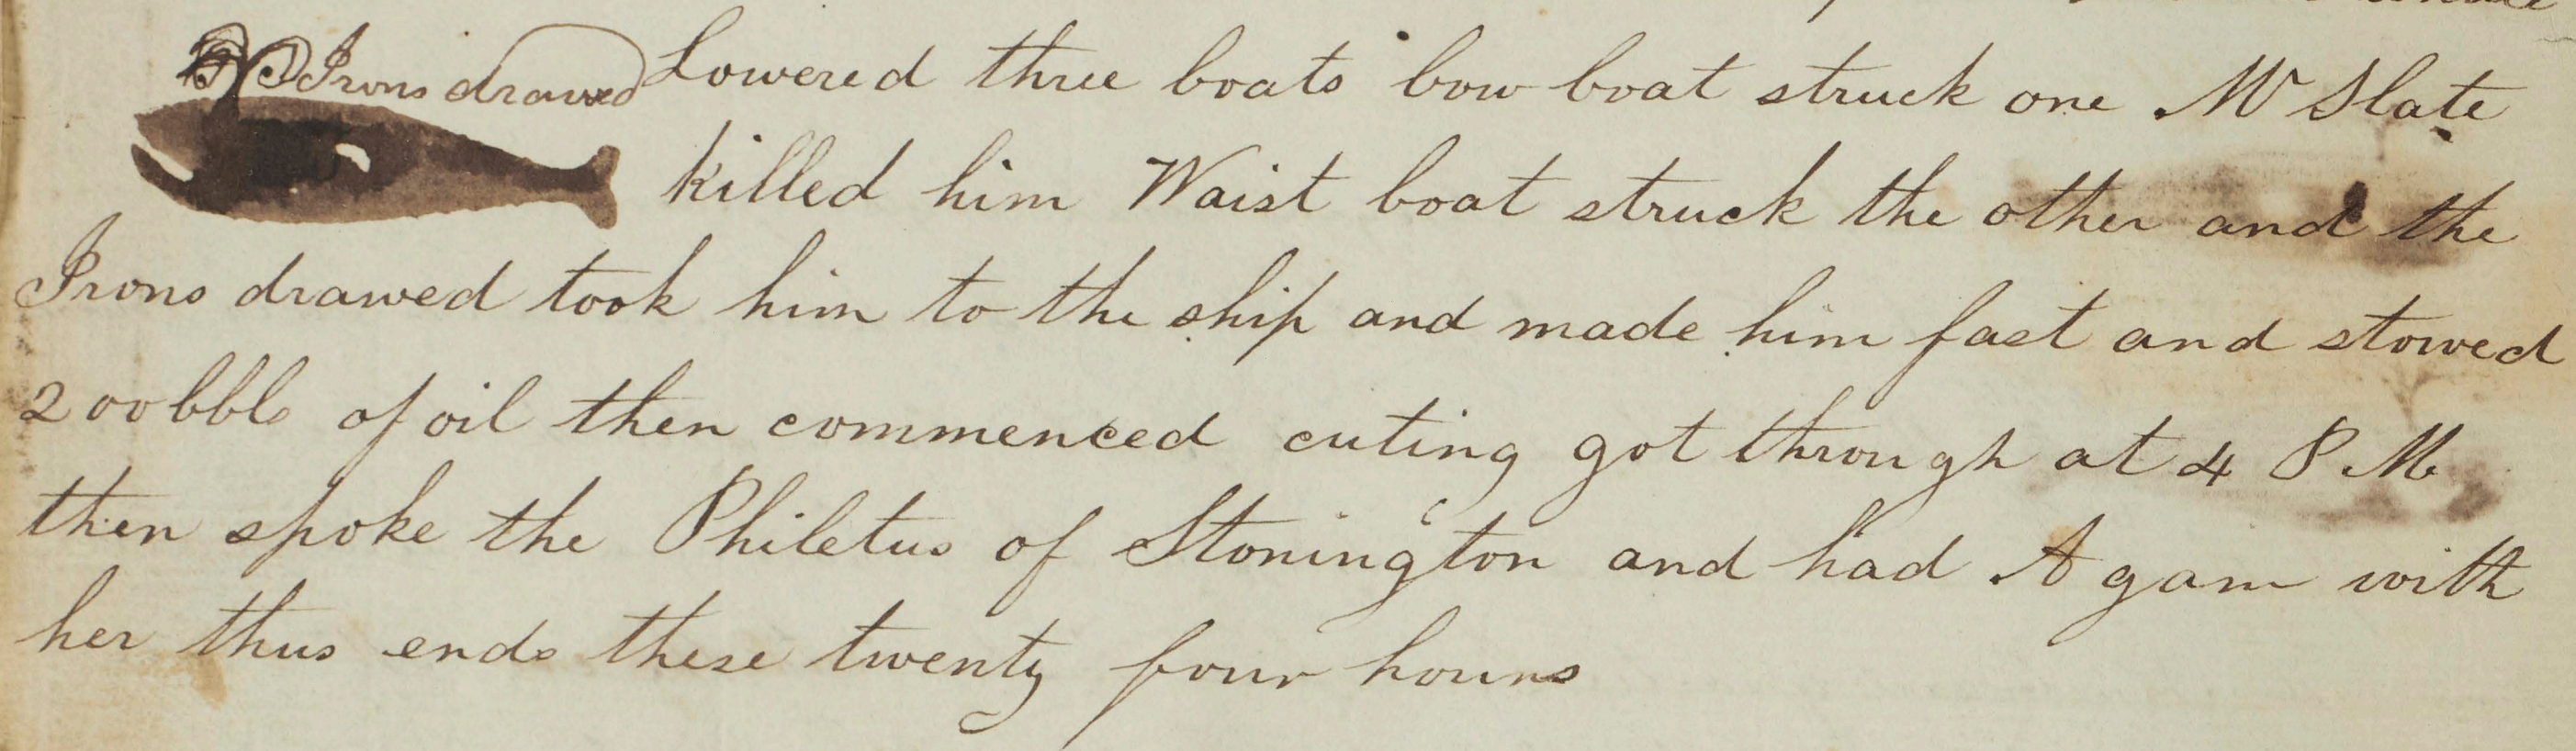 Irons drawed
Lowered three boats bow boat struck one Mr Slate
killed him Waist boat struck the other and the
Irons drawed took him to the ship and made him fast and stowed
200 bbls of oil then commenced cuting got through at 4 P M
then spoke the Philetus of Stonington and had A gam with
her thus ends these twenty four hours